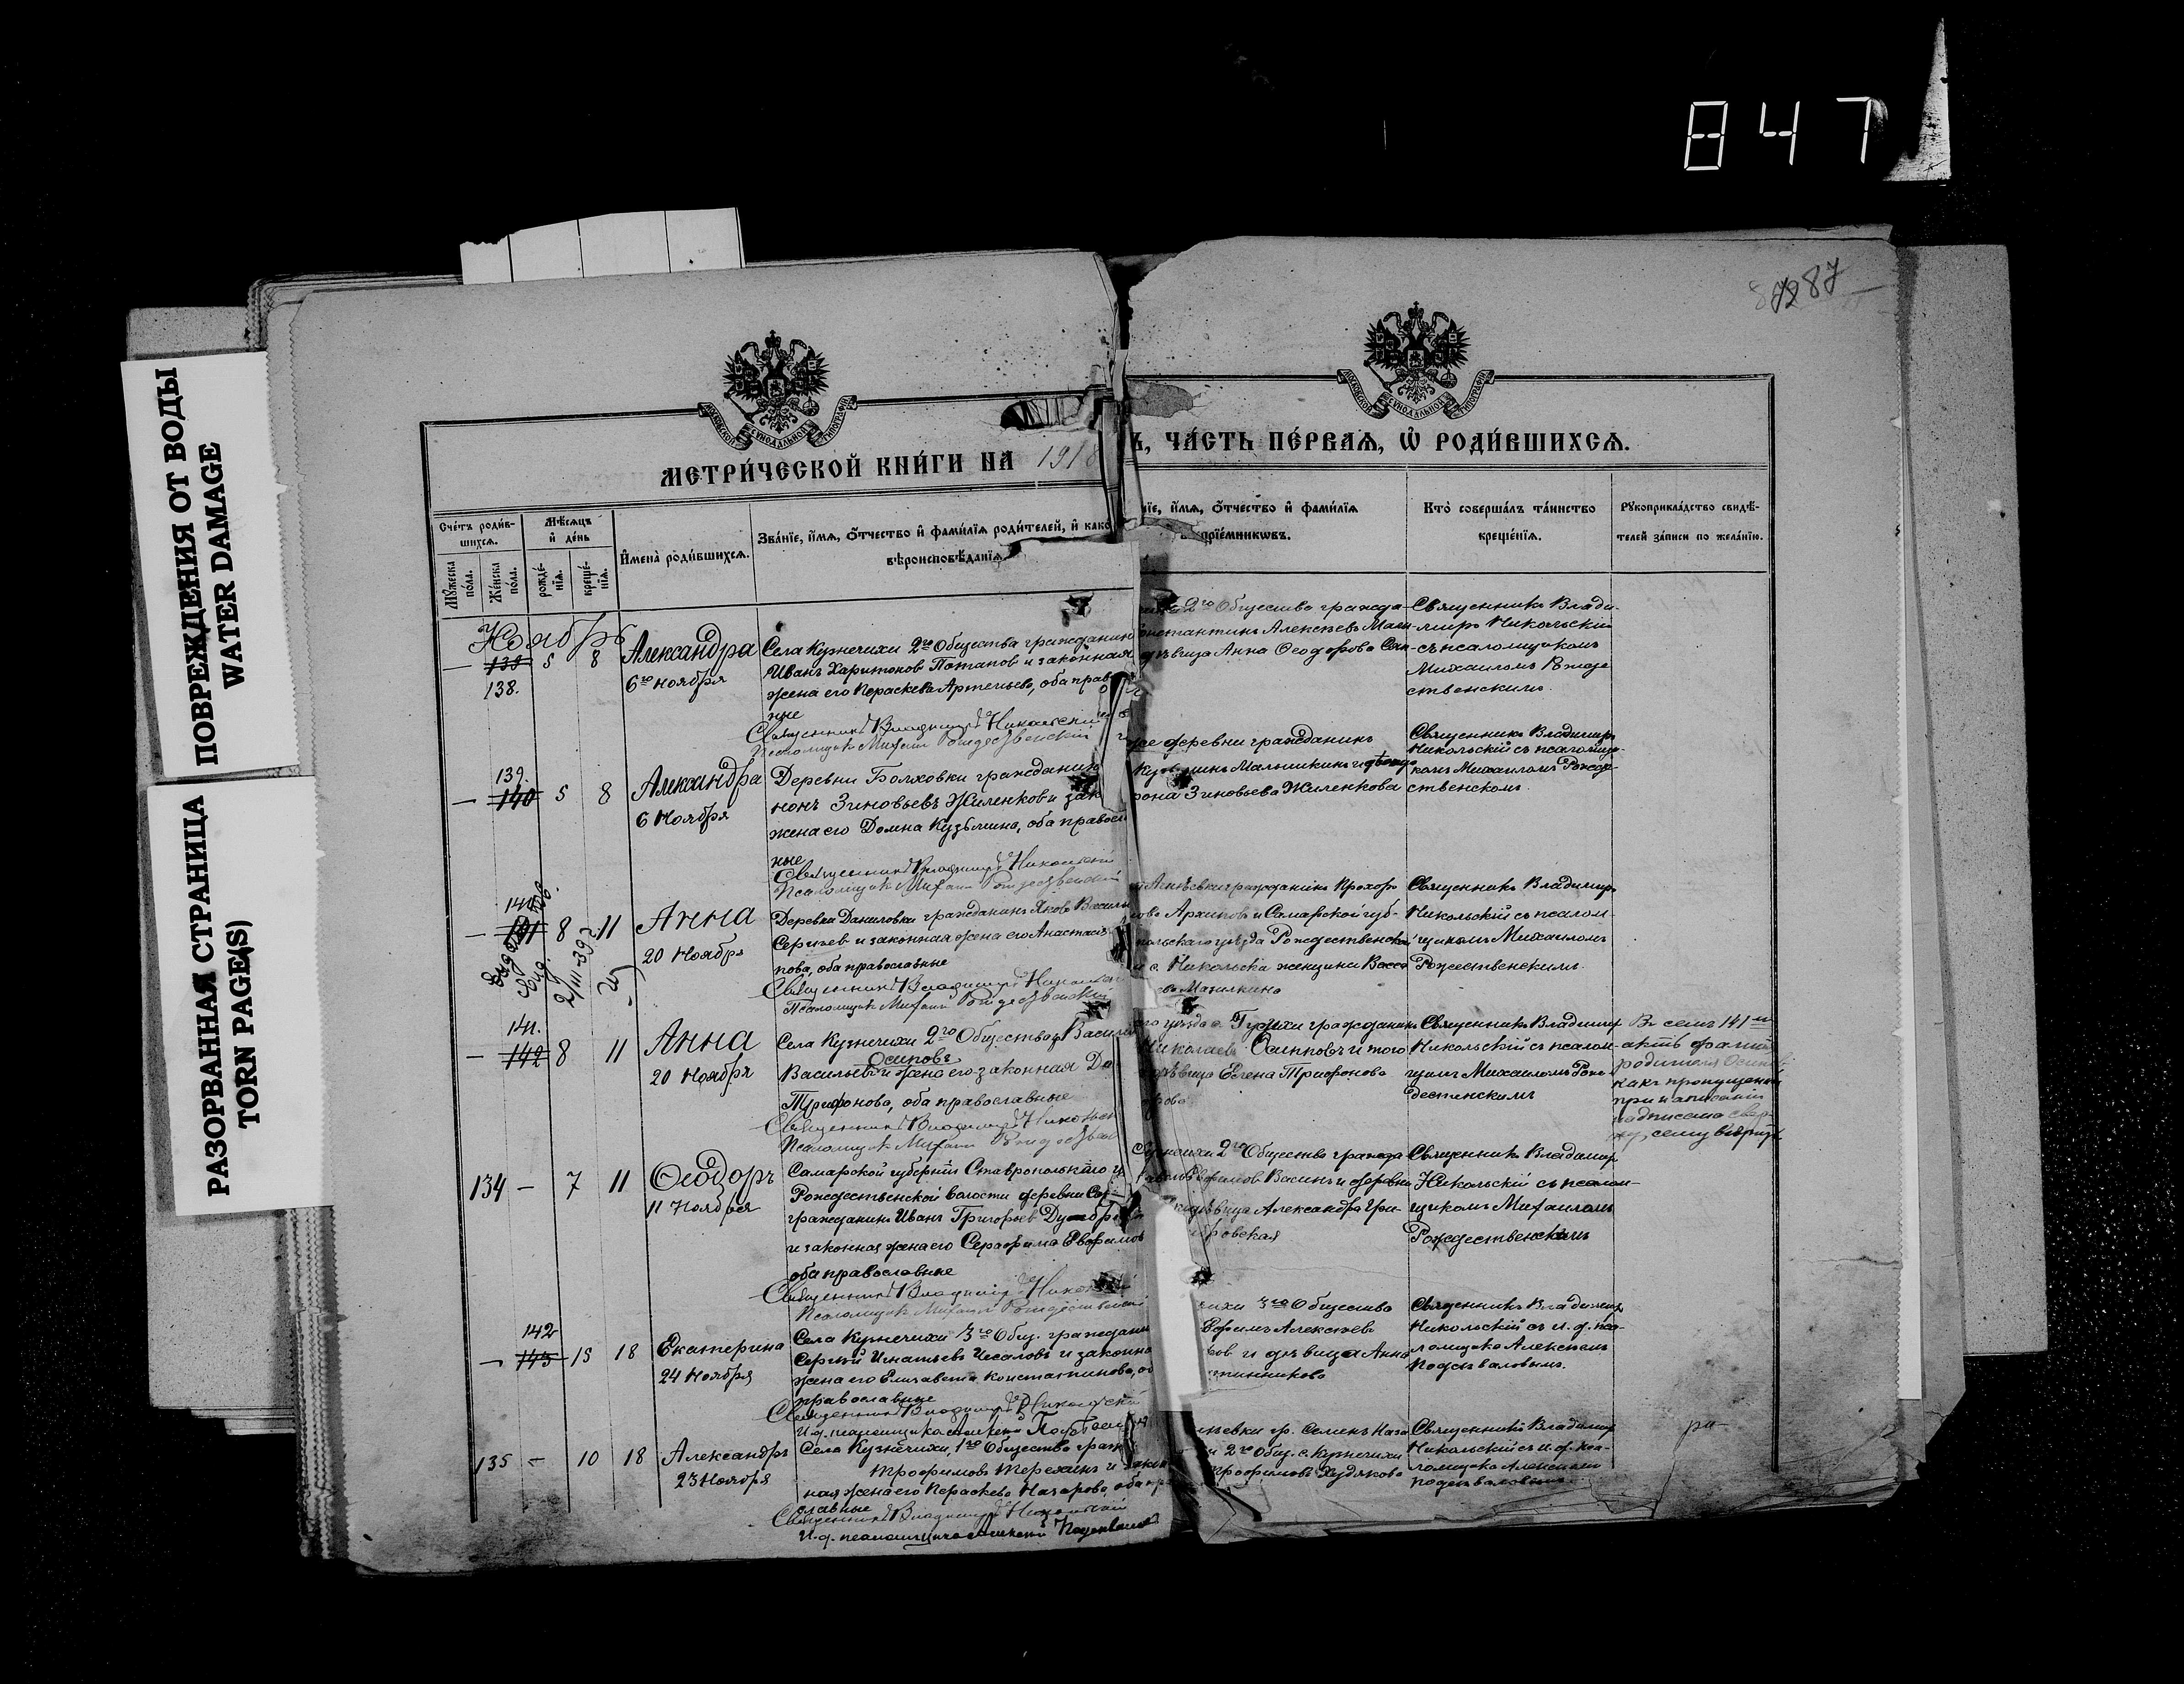 847
87
ПОВРЕЖДЕНИЯ ОТ ВОДЫ
WATER DAMAGE
РАЗОРВАННАЯ СТРАНИЦА
TORN PAGE(S)
МОСКОВСКОЙ СѴНОДАЛЬНОЙ ТИПОГРАФІИ
МОСКОВСКОЙ СѴНОДАЛЬНОЙ ТИПОГРАФІИ
МЕТРИ́ЧЕСКОЙ КНИ́ГИ НА 1918
Ъ, ЧА́СТЬ ПЕ́РВАѦ, Ѡ҆ РОДИ́ВШИХСѦ.
Сче́тъ роди́в-
шихсѧ.
Мꙋ́жеска по́ла.
Же́нска по́ла.
Мѣ́сѧцъ и҆ де́нь
рожде́-
нїѧ.
креще́-
нїѧ.
И҆мена̀ роди́вшихсѧ.
Зва́нїе, и҆́мѧ, ѻ҆́тчество и҆ фами́лїѧ роди́телей, и҆ како
вѣроисповѣ́данїѧ
нїе, и҆́мѧ, ѻ҆́тчество и҆ фами́лїѧ
прїе́мникѡвъ.
Кто̀ соверша́лъ та́инство
креще́нїѧ.
Рꙋкоприкла́дство свидѣ́-
телей за́писи по жела́нїю.
Ноябрь
— 138. 5 8
Александра
6го ноября
Села Кузнечихи 2го Общества гражданин
Иванъ Харитонов Потапов и законная
жена его Параскева Артемьева, оба прав
ные
Священникъ Владимиръ Никольский
Псаломщикъ Михаил Рождественский
2го Общества гражда-
онстантинъ Алексѣевъ
дѣвица Анна Феодорова
Священникъ Влади-
миръ Никольский
съ псаломщикомъ
Михаиломъ Рожде
ственскимъ.
139.
— 140 5 8
Александра
6 Ноября
Деревни Болховки гражданин
нонъ Зиновьевъ Жиленковъ и зак
жена его Домна Кузьмина, оба правосл
ные
Священникъ Владимиръ Никольский
Псаломщикъ Михаил Рождественский
же деревни гражданинъ
Малышкинъ и
рона Зиновьева Жиленкова
Священникъ Владимиръ
Никольский съ псаломщи-
комъ Михаиломъ Рожде-
ственскомъ.
140.
— 141 8 11
Анна
20 Ноября
Деревни Даниловки гражданинъ Яковъ Василь
Сергѣев и законная жена его Анастасія
пова, оба православные
Священникъ Владимиръ Никольский
Псаломщикъ Михаил Рождественский
гражданинъ Прохоръ
Архиповъ и Самарской губ-
польскаго уѣзда Рождественской
с. Никольска женщина Васса
Мазилкина
Священникъ Владимиръ
Никольский съ псалом-
щикомъ Михаиломъ
Рожественскимъ.
141.
— 142 8 11
Анна
20 Ноября
Села Кузнечихи 2го Общества Васил
Осиповъ
Васильев и жена его законная
Трифонова, оба православные
Священникъ Владимиръ Никольск
Псаломщикъ Михаил Рождествен
го уѣзда с. гражданинъ
Николаевъ Осиповъ и того
дѣвица Евгена Трифонова
Священникъ Владимир
Никольский съ псалом-
щикомъ Михаиломъ Рож-
дественскимъ
Въ семъ 141м
актѣ фамилія
родителя Осипов
какъ пропущенная
при написании
надписана сверху
134 — 7 11
Феодоръ
11 Ноября
Самарской губерніи Ставропольскаго у
Рождественской волости деревни
гражданинъ Иванъ Григорьев
и законная жена его Серафима Евфимов
оба православные
Священникъ Владимиръ Никольский
Псаломщикъ Михаил Рождественский
2го Общества гражда
Евфимов Васинъ и деревни
дѣвица Александра Гри-
бровская
Священникъ Владимир
Никольский съ псалом-
щикомъ Михаиломъ
Рождественскимъ
142
— 143 15 18
Екатерина
24 Ноября
Села Кузнечихи 3го Общ. граждани
Сергѣй Игнатьевъ Чесаловъ и законна
жена его Елизавета Константинова, об
православные
Священникъ Владимиръ Никольский
И. д. псаломщика Алексей
чихи 3го Общества
Ефимъ Алексѣев
ов и дѣвица Анна
Священникъ Владимир
Никольский съ и. д. пса-
ломщика Алексѣемъ
135 — 10 18
Александръ
23 Ноября
Села Кузнечихи, 1го Общества граж
Трофимовъ Терехинъ и закон
ная жена его Параскева Назарова, оба пра
славные
Священникъ Владимиръ Никольский
И. д. псаломщика Алексей
гр. Семенъ Наза
2го Общ. с. Кузнечихи
Трофимовъ Худякова
Священникъ Владимир
Никольский съ и. д. пса-
ломщика Алексѣем